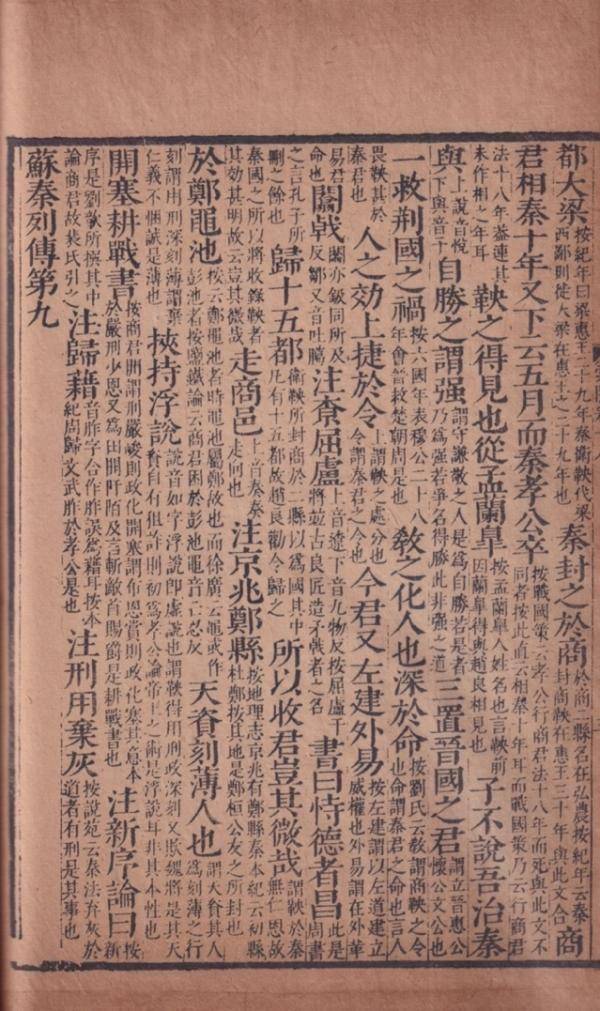 都大梁按紀年曰梁惠王二十九年秦衛鞅伐梁西鄙則徙大梁在惠王之二十九年也秦封之於商於商二縣名在弘農按紀年云秦封商鞅在惠王三十年與此文合商
君相秦十年又下云五月而秦孝公卒按戰國策云孝公行商君法十八年而死與此文不同者按此直云相秦十年耳而戰國策乃云行商君
法十八年葢連其未作相之年耳鞅之得見也從孟蘭皐按孟蘭皐人姓名也言鞅前因蘭皐得與趙良相見也子不說吾治秦
與上說音悅下與音予自勝之謂强謂守謙敬之人是爲自勝若是者乃爲强若爭名得勝此非强之道三置晉國之君謂立晉惠公懷公文公也
一救荆國之禍按六國年表穆公二十八年會晉救楚朝周是也敎之化人也深於命按劉氏云敎謂商鞅之令也命謂秦君之命也言人
畏鞅甚於秦君也人之効上捷於令上謂鞅之處分也令謂秦君之令也今君又左建外易按左建謂以左道建立威權也外易謂在外革
易君命也闟戟闟亦鈒同所及反鄒又音吐臘注屈盧上音遼下音九物反按屈盧干將並古良匠造矛戟者之名書曰恃德者昌此是周書
之言孔子所刪之餘也歸十五都衛鞅所封商於二縣以爲國其中凡有十五都故趙良勸令歸之所以收君豈其微哉謂鞅於秦無仁恩故
秦國之所以將收錄鞅者其効甚明故云豈其微哉走商邑上音奏奏走向也注京兆鄭縣按地理志京兆有鄭縣秦本紀云初縣杜鄭按其地是鄭桓公友之所封也
於鄭黽池按云鄭黽池者時黽池屬鄭故也而徐廣云黽或作彭池者按鹽鐵論云商君困於彭池黽音亡忍反天資刻薄人也謂天資其人爲刻薄之行
刻謂用刑深刻薄謂棄仁義不悃誠是薄也挾持浮說說音如字浮說即虛說也謂鞅得用刑政深刻又欺魏將是其天資自有狙詐則初爲孝公論帝王之術是浮說耳非其本性也
開塞耕戰書按商君書開謂刑嚴峻則政化開塞謂布恩賞則政化塞其意本於嚴刑少恩又爲田開阡陌及言斬敵首賜爵是耕戰書也注新序論曰按新
序是劉歆所撰其中論商君故裴氏引之注歸籍音胙字合作胙誤爲籍耳按本紀周歸文武胙於孝公是也注刑用棄灰按說苑云秦法弃灰於道者有刑是其事也
蘇秦列傳第九